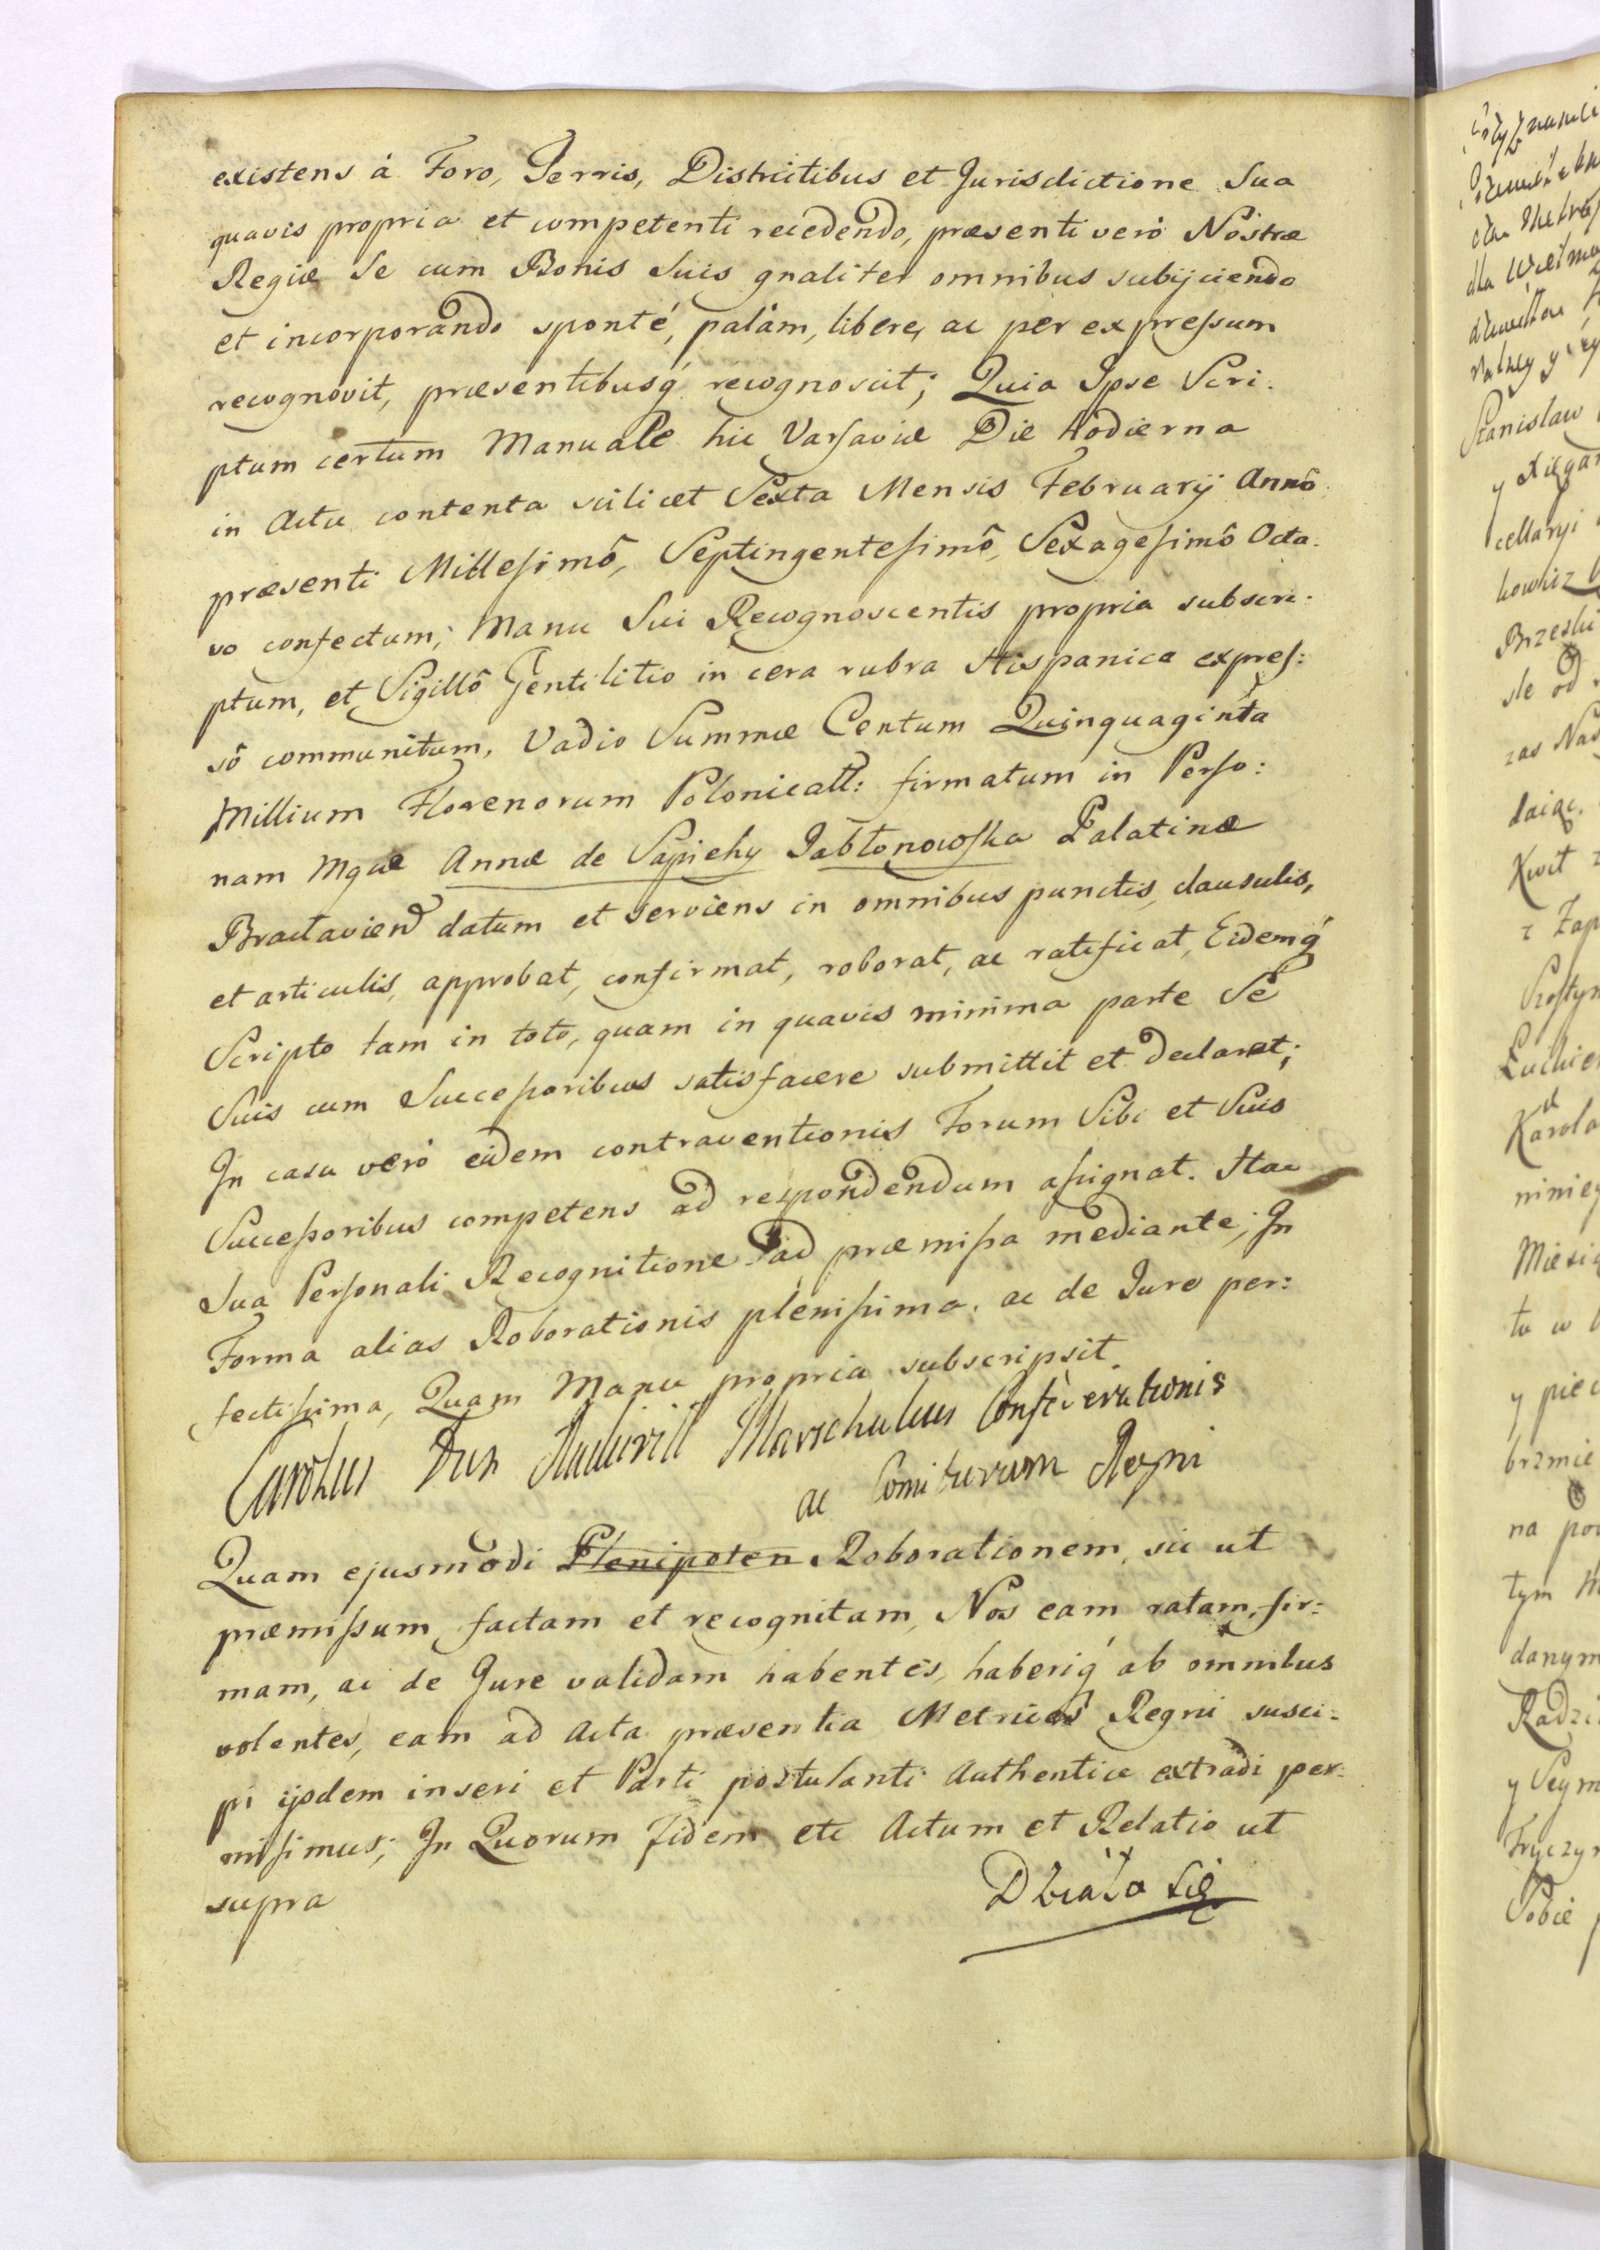 existens à Foro, Terris, Districtibus et Jurisdictione Sua
quavis propria et competenti recedendo, præsenti verò Nostræ
Regiæ Se cum Bonis Suis gnaliter omnibus subijciendo
et incorporando sponté, palàm, libere, ac per expreſsum
recognovit, præsentibusq́ recognoscit; Quia Ipse Scri-
ptum certum Manuale hic Varſaviæ Die hodierna
in Actu contenta scilicet Sexta Mensis Februarij Annô
præsenti Milleſimô, Septingenteſimô, Sexageſimô Octa-
vo confectum; Manu Sui Recognoscentis propria subscri-
ptum, et Sigillô Gentilitio in cera rubra Hispanica expreſ:
sô communitum, Vadio Summæ Centum Quinquaginta
Millium Florenorum Polonicall: firmatum in Perſo:
nam Mgæ Annæ de Sapiehy Jabłonowſka Palatinæ
Braclavien datum et serviens in omnibus punctis, clausulis,
et articulis, approbat, confirmat, roborat, ac ratificat, Eidemq́
Scripto tam in toto, quam in quavis minima parte Se
Suis cum Succeſsoribus satisfacere submittit et declarat;
In casu verò eidem contraventionis Forum Sibi et Suis
Succeſsoribus competens ad respondendum aſsignat. Hac
Sua Perſonali Recognitione ad præmiſsa mediante; In
Forma alias Roborationis pleniſsima, ac de Jure per:
fectiſsima, Quam Manu propria subscripsit.
Carolus Dux Radivill Marschalcus Confæderationis
ac Comitiorum Regni
Quam ejusmodi Plenipoten Roborationem, sic ut
præmiſsum, factam et recognitam, Nos eam ratam, fir:
mam, ac de Jure validam habentes, haberiq́ ab omnibus
volentes, eam ad Acta præsentia Metrices Regni susci-
pi ijsdem inseri et Parti postulanti Authentice extradi per-
miſimus; In Quorum Fidem etc Actum et Relatio ut
supra
Działo się
Stanisław
cellaryi
Brzeski
sle od
zas
Kwit z
z Zap
Karola
niniey
tu w
y piec
brzmie
na
tym
danym
Radzi
y Seym
Sobie